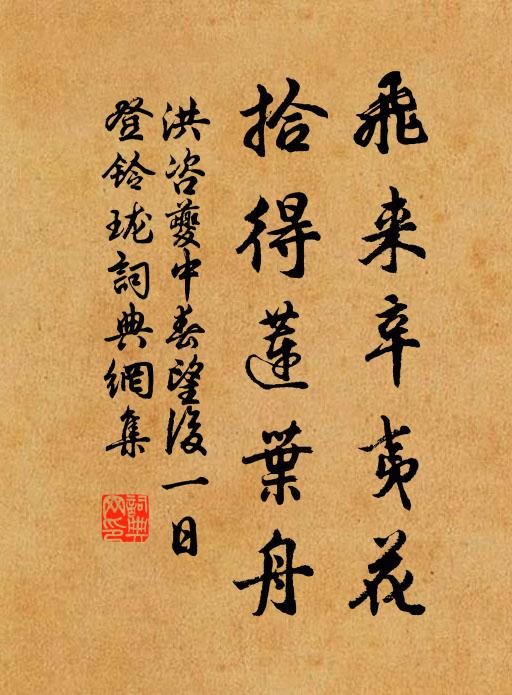 飛来辛夷花
拾得蓮葉舟
洪咨夔中春望後一日
登鈴瓏詞典網集
詞典網印